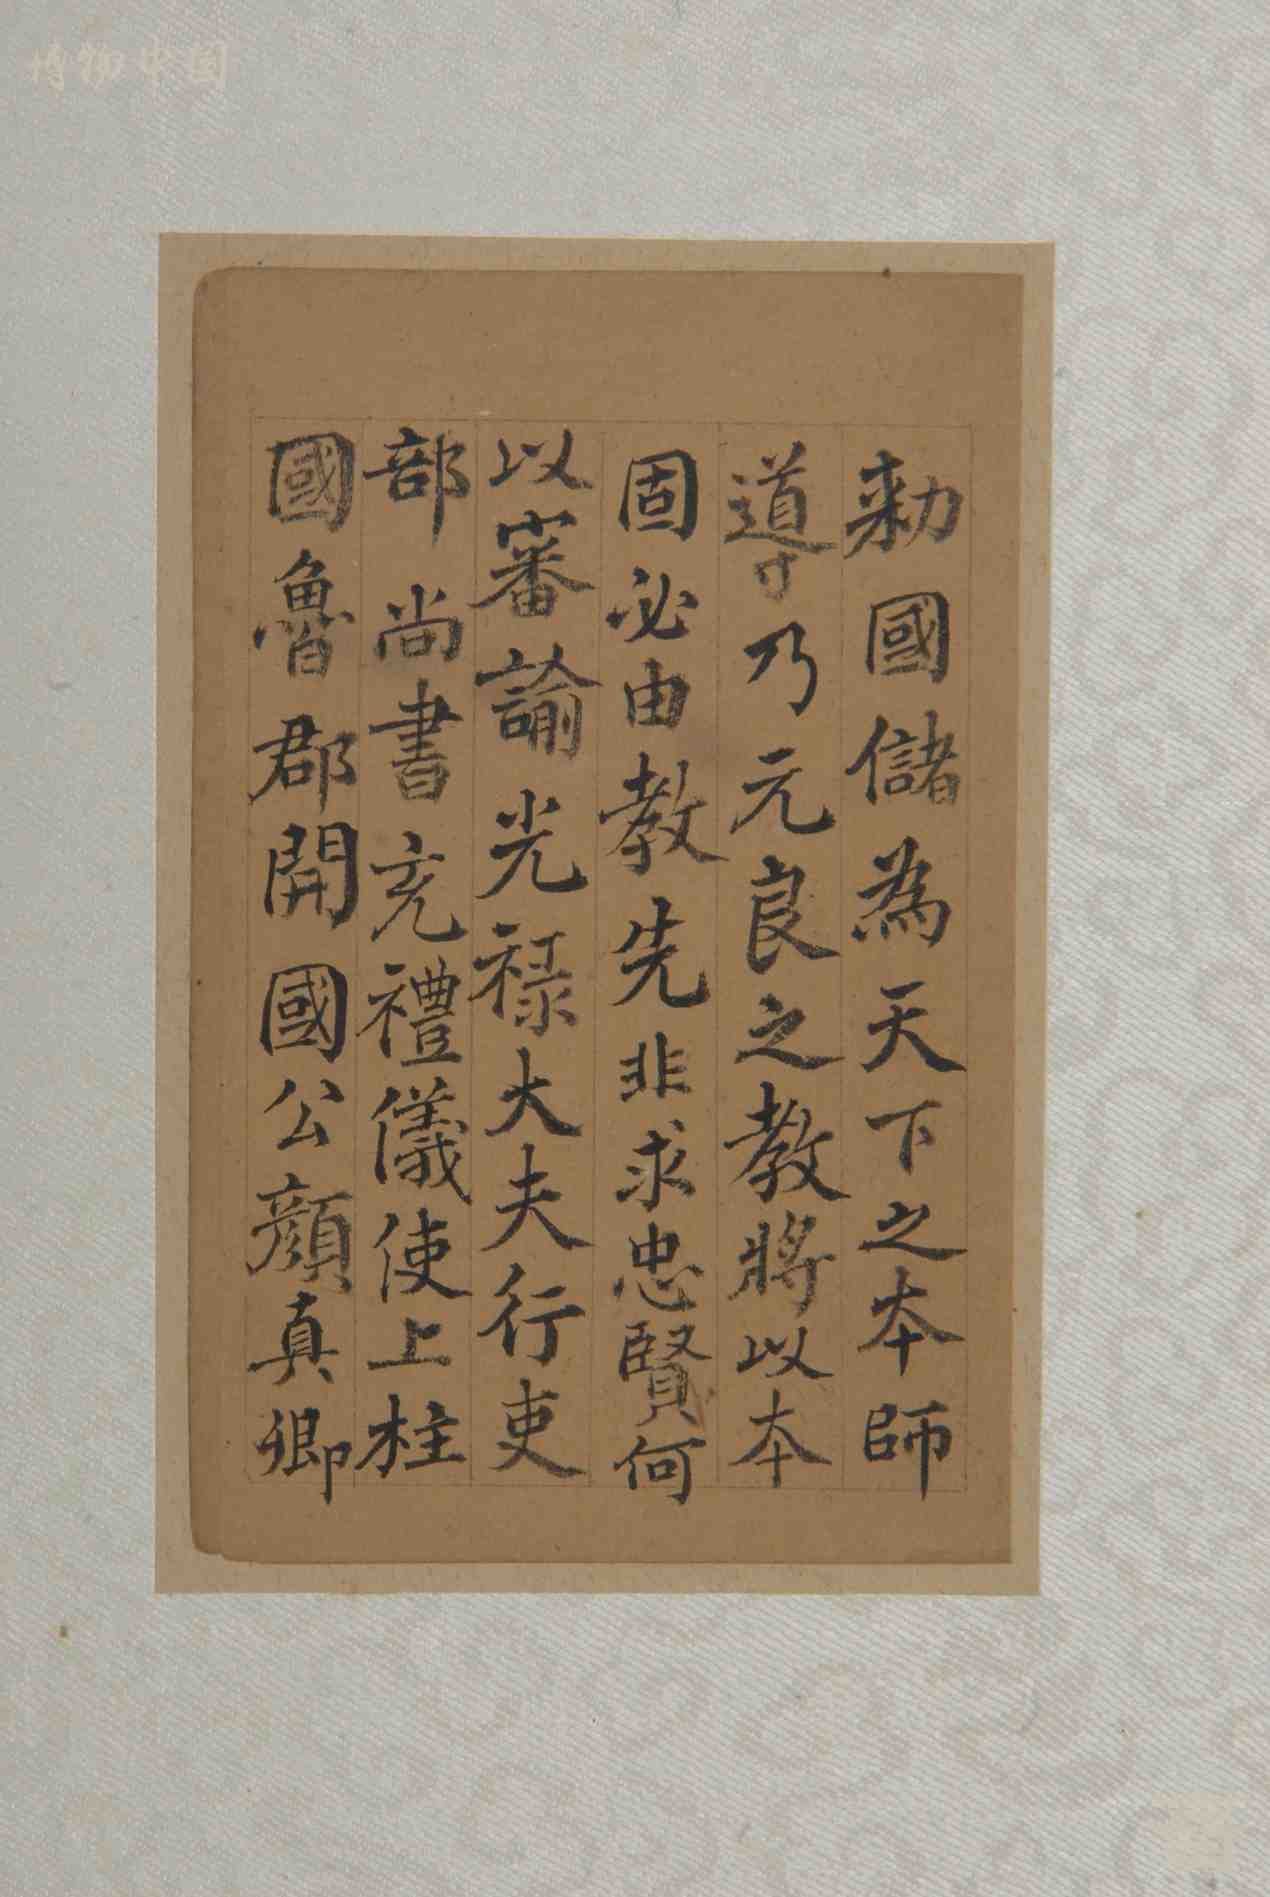 博物中国
勑國儲為天下之本師
導乃元良之教將以本
固必由教先非求忠賢何
以審諭光禄大夫行吏
部尚書充禮儀使上柱
國魯郡開國公顔真卿